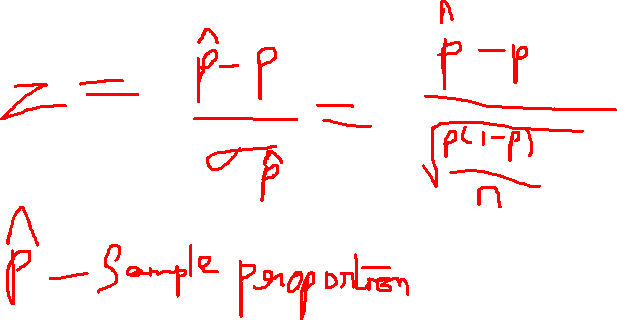 z = (p̂ - p) / σ_p̂ = (p̂ - p) / √(p(1-p)/n)
p̂ - Sample proportion